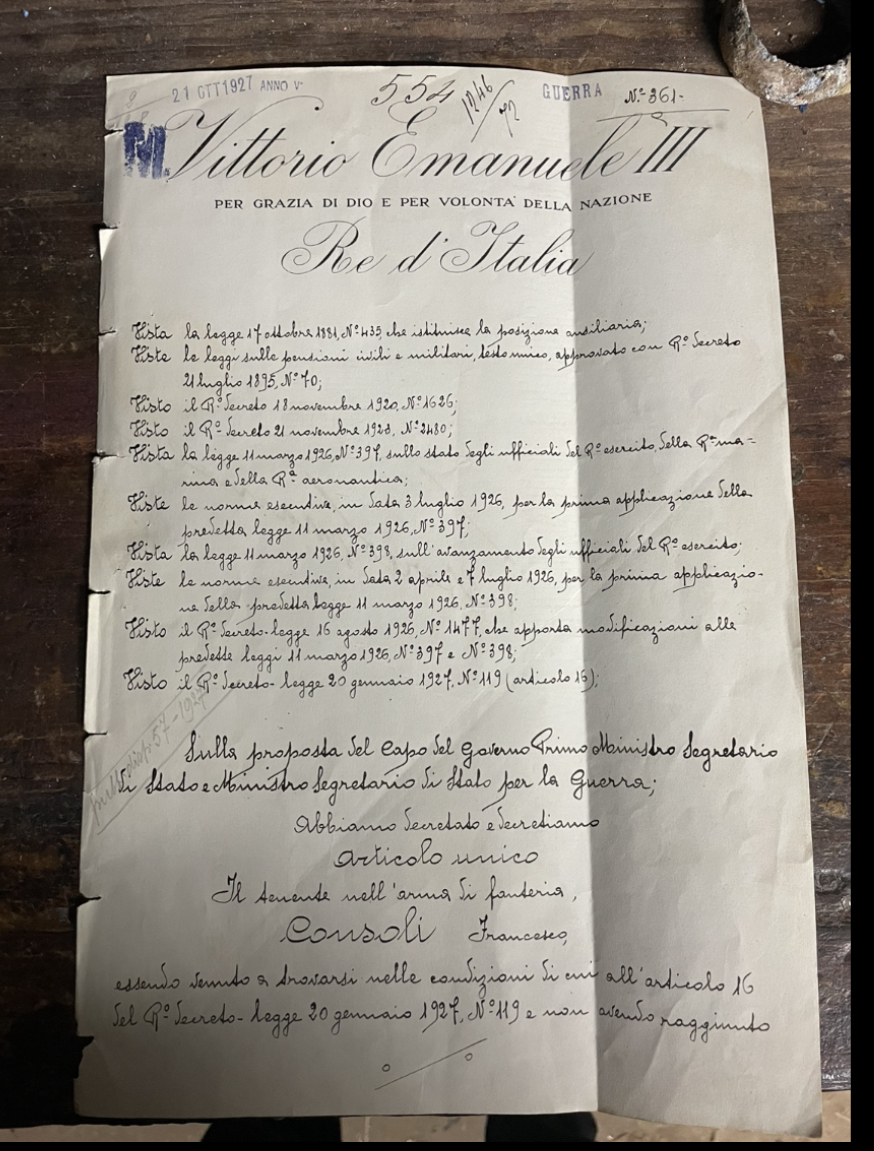 21 OTT 1927 ANNO V° 554 1246/72 GUERRA N.° 361-
M
Vittorio Emanuele III
PER GRAZIA DI DIO E PER VOLONTA' DELLA NAZIONE
Re d'Italia
Vista la legge 17 ottobre 1881, N° 435, che istituisce la posizione ausiliaria;
Viste le leggi sulle pensioni civili e militari, testo unico, approvato con R° Decreto
21 luglio 1895, N° 70;
Visto il R° Decreto 18 novembre 1920, N° 1626;
Visto il R° Decreto 21 novembre 1923, N° 2480;
Vista la legge 11 marzo 1926, N° 397, sullo stato degli ufficiali del R° esercito, della Rª ma=
rina e della Rª aeronautica;
Viste le norme esecutive, in data 3 luglio 1926, per la prima applicazione della
predetta legge 11 marzo 1926, N° 397;
Vista la legge 11 marzo 1926, N° 398, sull'avanzamento degli ufficiali del R° esercito;
Viste le norme esecutive, in data 2 aprile e 7 luglio 1926, per la prima applicazio-
ne della predetta legge 11 marzo 1926, N° 398;
Visto il R° Decreto-legge 16 agosto 1926, N° 1477, che apporta modificazioni alle
predette leggi 11 marzo 1926, N° 397 e N° 398;
Visto il R° Decreto-legge 20 gennaio 1927, N° 119 (articolo 16);
57-1927
Sulla proposta del Capo del Governo Primo Ministro Segretario
di Stato e Ministro Segretario di Stato per la Guerra;
Abbiamo decretato e decretiamo
Articolo unico
Il tenente nell'arma di fanteria,
Consoli Francesco,
essendo venuto a trovarsi nelle condizioni di cui all'articolo 16
del R° Decreto-legge 20 gennaio 1927, N° 119 e non avendo raggiunto